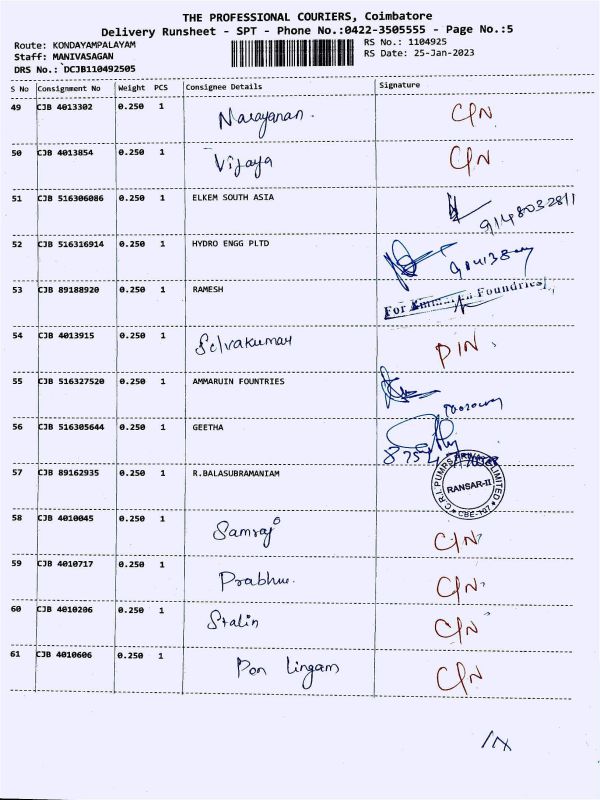 THE PROFESSIONAL COURIERS, Coimbatore
Delivery Runsheet - SPT - Phone No.:0422-3505555 - Page No.:5
Route: KONDAYAMPALAYAM RS No.: 1104925
Staff: MANIVASAGAN RS Date: 25-Jan-2023
DRS No.: DCJB110492505
S No Consignment No Weight PCS Consignee Details Signature
49 CJB 4013302 0.250 1 Narayanan. C/N
50 CJB 4013854 0.250 1 Vijaya C/N
51 CJB 516306086 0.250 1 ELKEM SOUTH ASIA 9148032811
52 CJB 516316914 0.250 1 HYDRO ENGG PLTD
53 CJB 89188920 0.250 1 RAMESH For Foundries
54 CJB 4013915 0.250 1 Selvakumar DIN.
55 CJB 516327520 0.250 1 AMMARUIN FOUNTRIES
56 CJB 516305644 0.250 1 GEETHA
57 CJB 89162935 0.250 1 R.BALASUBRAMANIAM C.R.I. PUMPS PRIVATE LIMITED RANSAR-II
58 CJB 4010045 0.250 1 Samraj C/N
59 CJB 4010717 0.250 1 Prabhu. C/N
60 CJB 4010206 0.250 1 Stalin C/N
61 CJB 4010606 0.250 1 Pon Lingam C/N